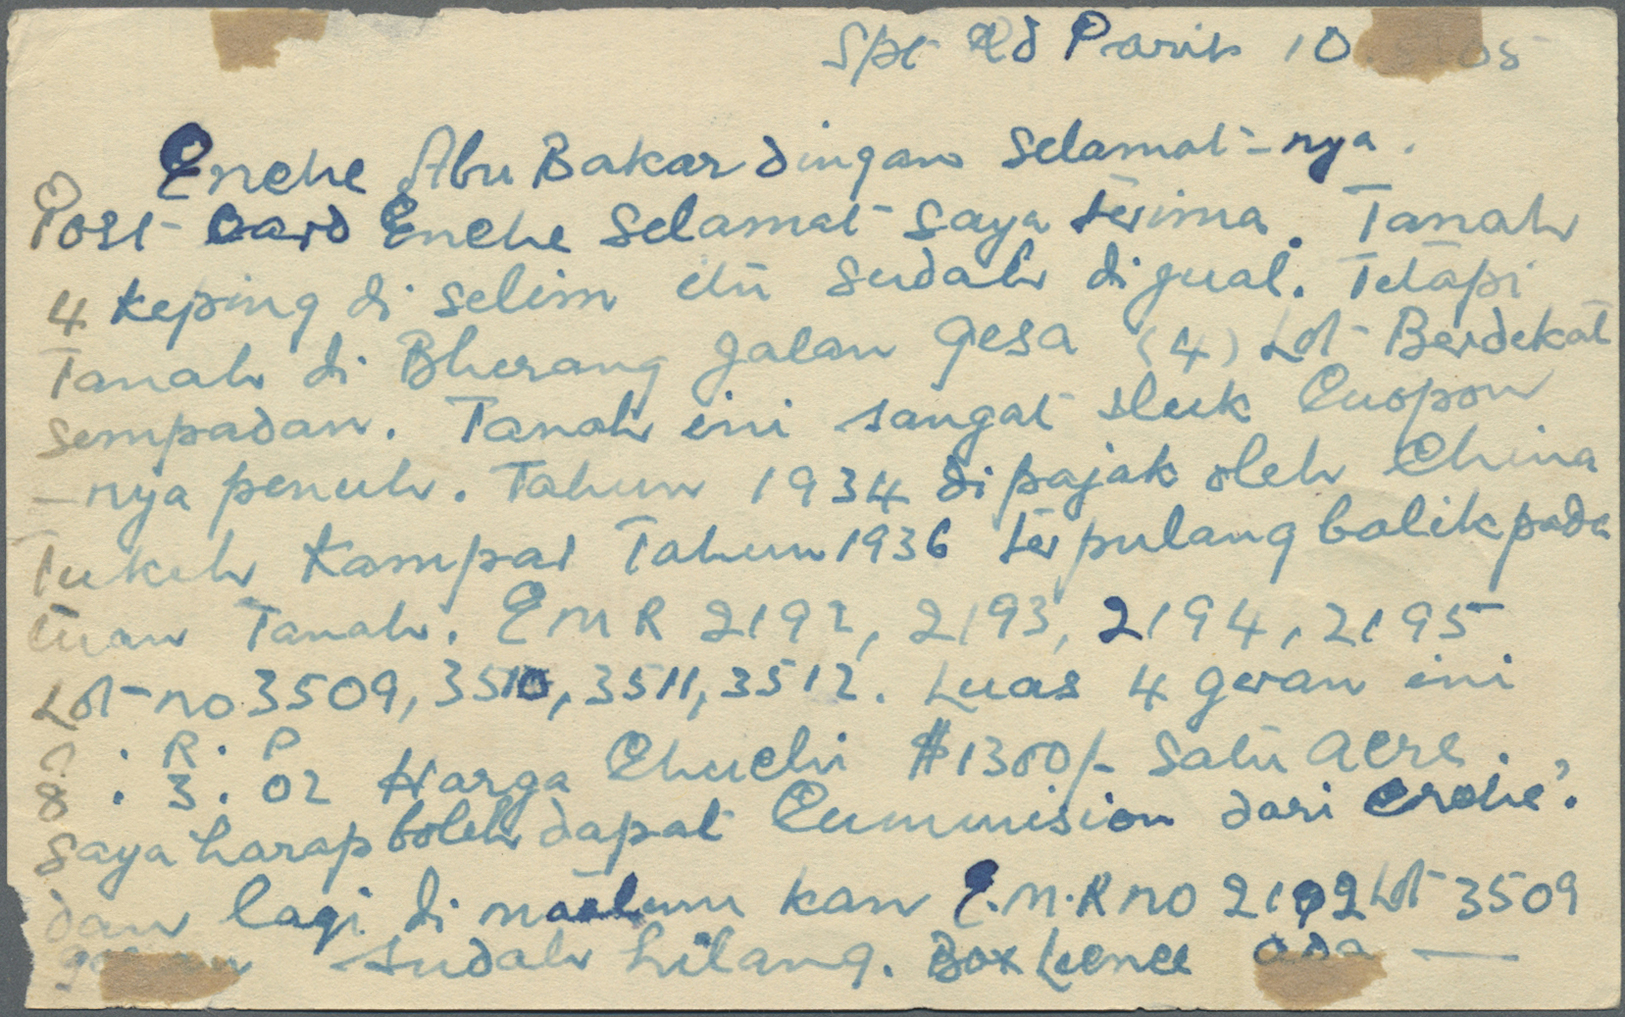 Spt Rd Parit 10 05
Enche Abu Bakar dingan Selamat-nya.
Post-Card Enche Selamat Saya terima. Tanah
4 keping di Selim itu Sudah di jual. Tetapi
Tanah di Bherang Jalan Gesa (4) Lot Berdekat
Sempadan. Tanah ini sangat eluk Cuopon
-nya penuh. Tahun 1934 di pajak oleh China
Tukeh Kampar Tahun 1936 terpulang balik pada
tuan Tanah. E M R 2192, 2193, 2194, 2195
Lot no 3509, 3510, 3511, 3512. Luas 4 geran ini
. R. P
8. 3. 02 Harga Chuchi $1300/- Satu acre.
Saya harap boleh dapat Cummision dari Enche.
dan lagi di maalum kan E.M.R no 2192 Lot 3509
sudah hilang. Box Leence ada —